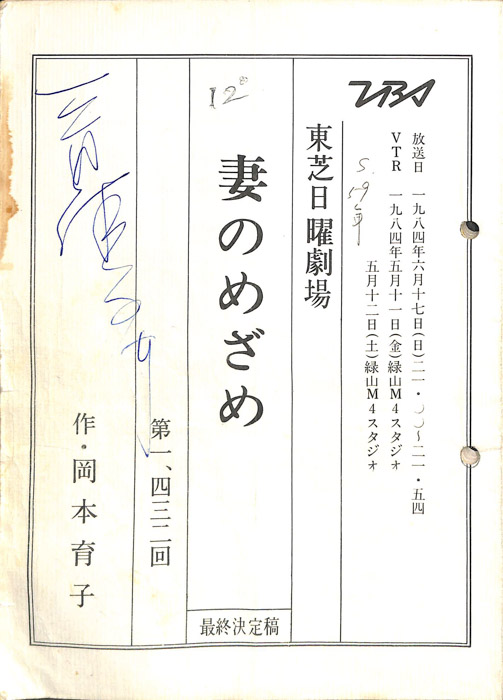 TBS
放送日 一九八四年六月十七日(日)二一・〇〇〜二一・五四
VTR 一九八四年五月十一日(金)緑山M4スタジオ
五月十二日(土)緑山M4スタジオ
S.59年
東芝日曜劇場
12°
妻のめざめ
最終決定稿
第一、四三二回
作・岡本育子